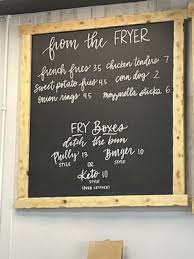 from the FRYER
french fries 3.5 chicken tenders 7
Sweet potato fries 4.5 corn dog 2
Onion rings 4.5 mozzarella sticks 6
FRY Boxes
ditch the bun
Philly 13 Burger 10
STYLE OR STYLE
Keto 10
STYLE
(OVER LETTUCE)